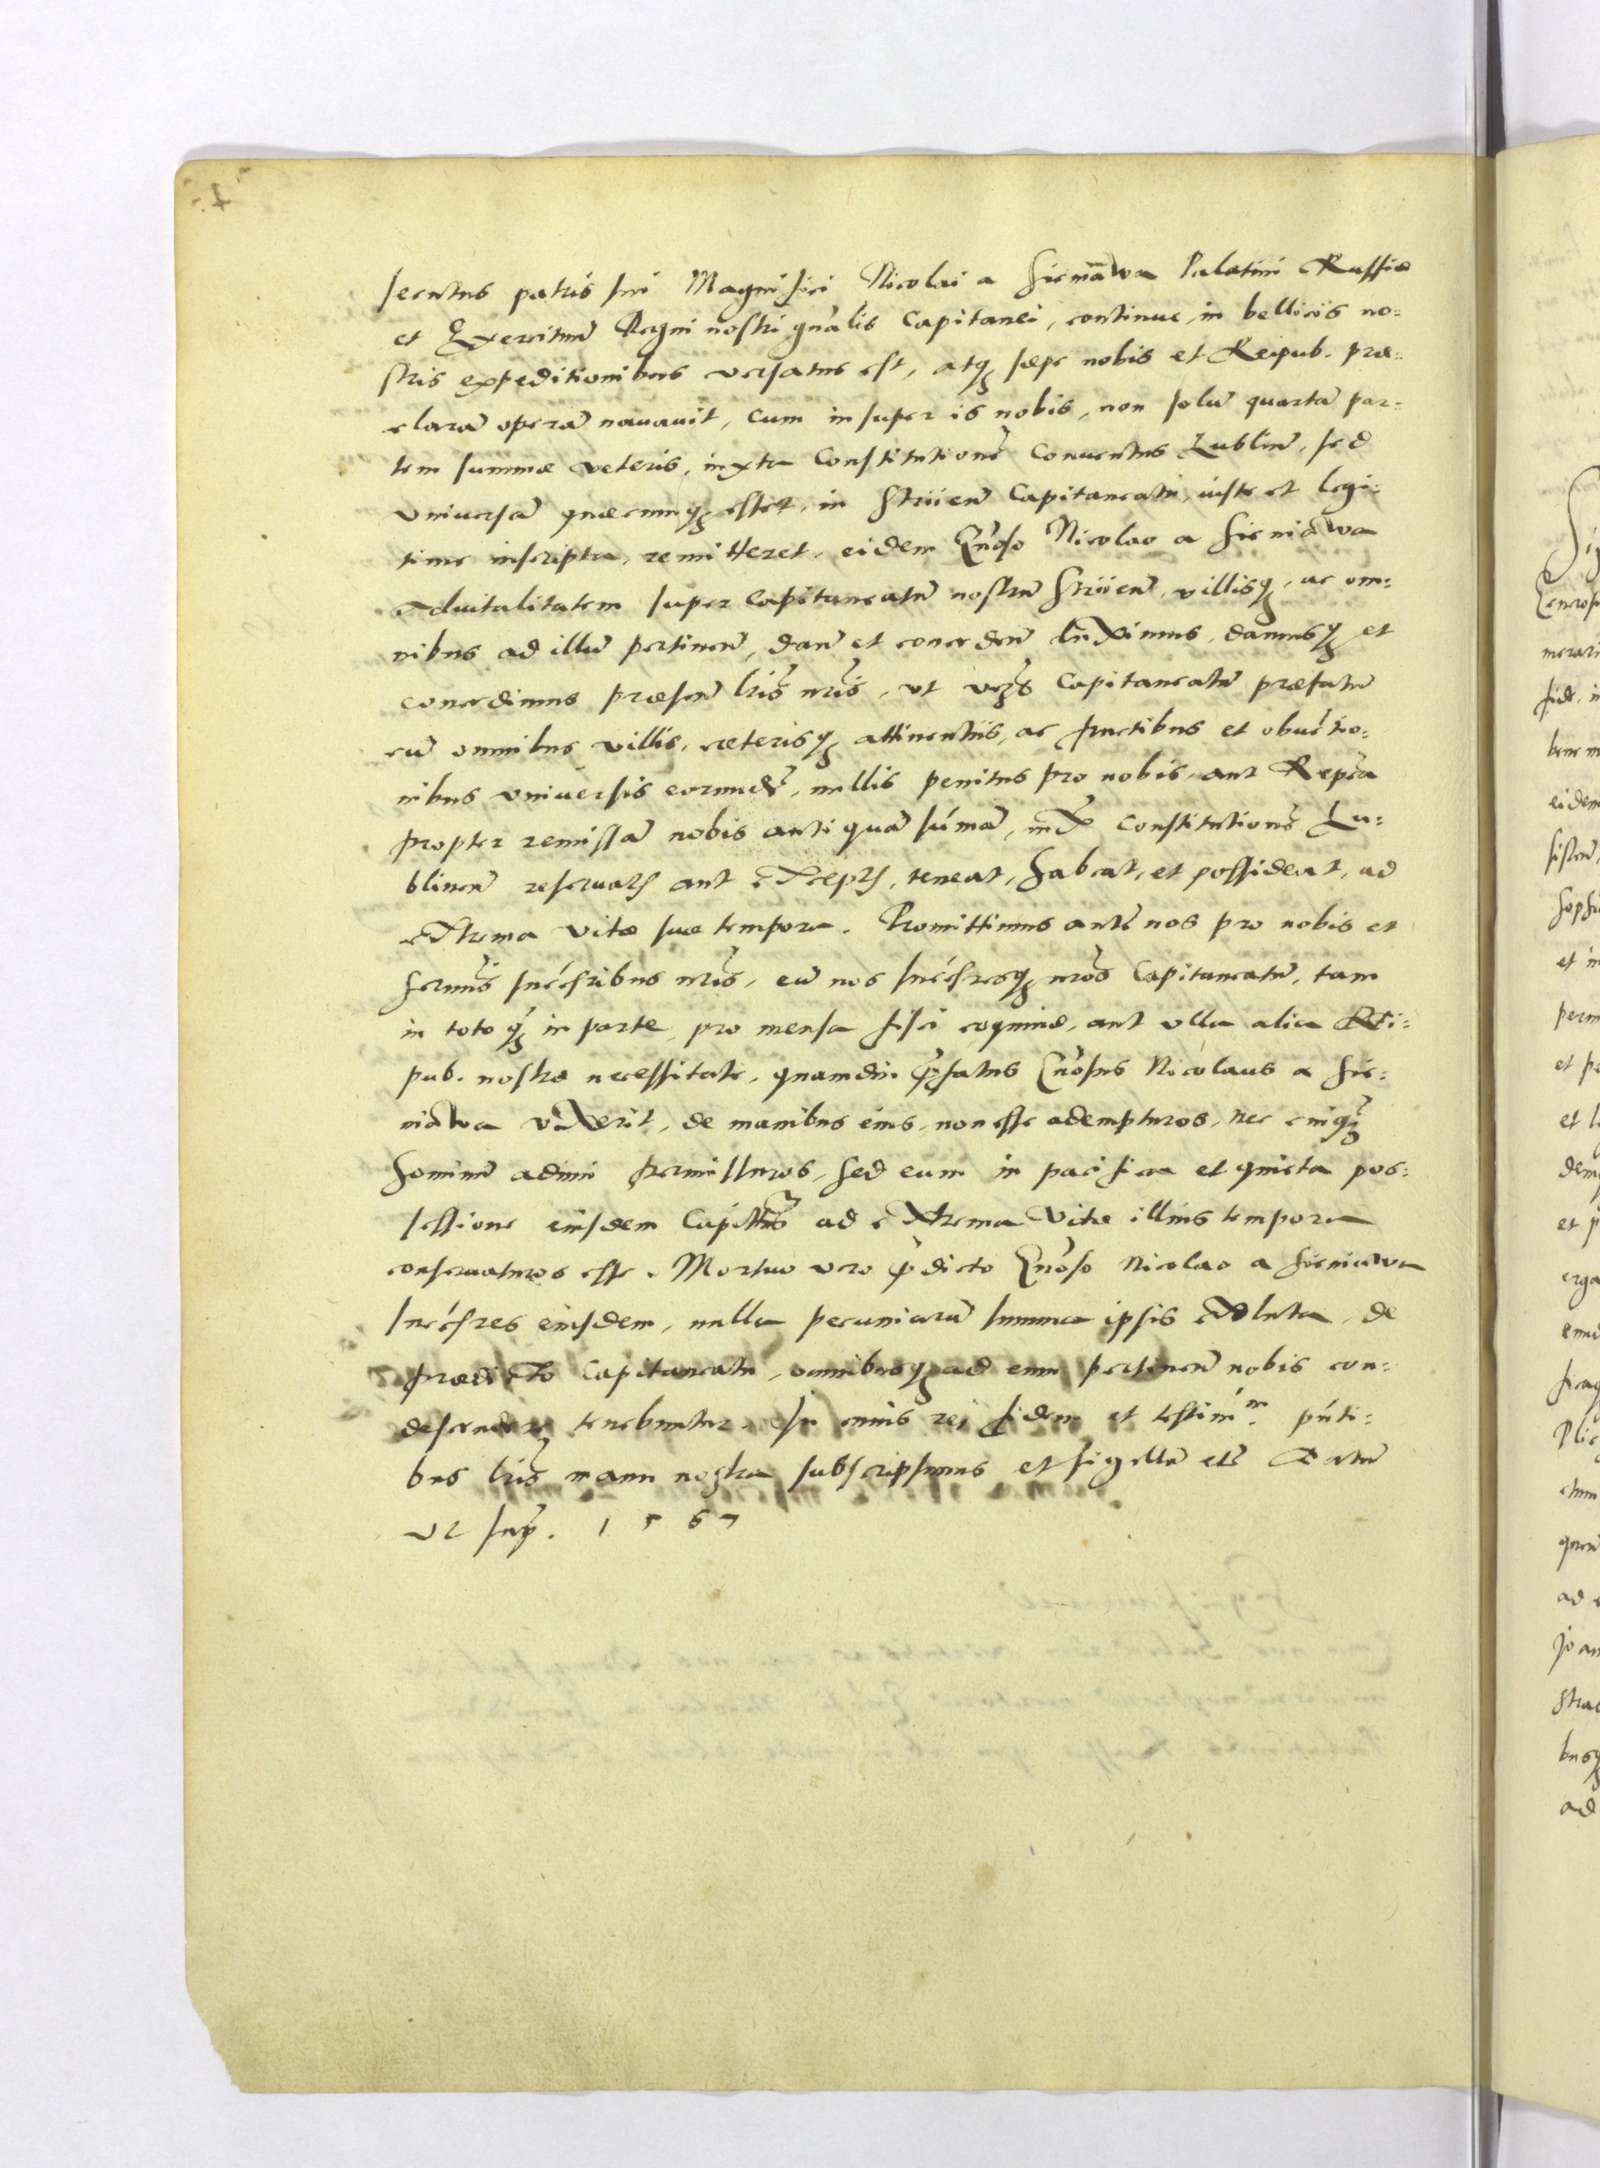 secutus patris sui Magnifici Nicolai a Sieniawa Palatini Russiæ
et Exercituū Regni nostri gn̄alis Capitanei, continue, in bellicis no:
stris expeditionibus versatus est, atq; sæpe nobis et Reipub. præ:
clarā operā navavit, cum insuper is nobis, non solū quartā par:
tem summæ veteris, iuxta Constitutionē Conventus Lublineñ, sed
vniversā quæcunq; esset, in Striieñ Capitaneatu, iuste et legi:
time inscripta, remitteret, eidem Gn̄oso Nicolao a Sieniawa
Advitalitatem super Capitaneatū nostrū Striieñ, villisq;, ac om:
nibus ad illū pertineñ, dañ et concedeñ duximus, damusq; et
concedimus præseñ lr̄is nr̄is, vt Capitaneatū præfatū
cū omnibus villis, cæterisq; attinentiis, ac fructibus et obuētio:
nibus vniversis eorundē, nullis penitus pro nobis, aut Repca
propter remissā nobis antiquā sūmā, iux Constitutionē Lu:
blineñ reservatis aut exceptis, teneat, habeat, et possideat, ad
extrema vitæ suæ tempora. Promittimus autē nos pro nobis et
Sermis Succ̄ribus nr̄is, eū nos Succ̄resq; nr̄os Capitaneatū, tam
in toto q; in parte, pro mensa fisci coquinæ, aut vlla alia Rei:
pub. nostræ necessitate, quamdiu p̄fatus Gn̄osus Nicolaus a Sie:
niawa vixerit, de manibus eius, non esse adempturos, nec cuiq;
hominū adimi permissuros, sed eum in pacifica et quieta pos:
sessione eiusdem Capittus ad extrema vitæ illius tempora
conservaturos esse. Mortuo vero p̄dicto Gn̄oso Nicolao a Sieniawa
Succ̄res eiusdem, nulla pecuniarū summa ipsis exoluta, de
prædicto Capitaneatu, omnibusq; ad eum pertineñ nobis con:
descendere tenebuntur. In cuius rei fidem et testimm. pn̄ti:
bus lr̄is manu nostra subscripsimus et sigillū etc̄ Datū
vt sup. 1567